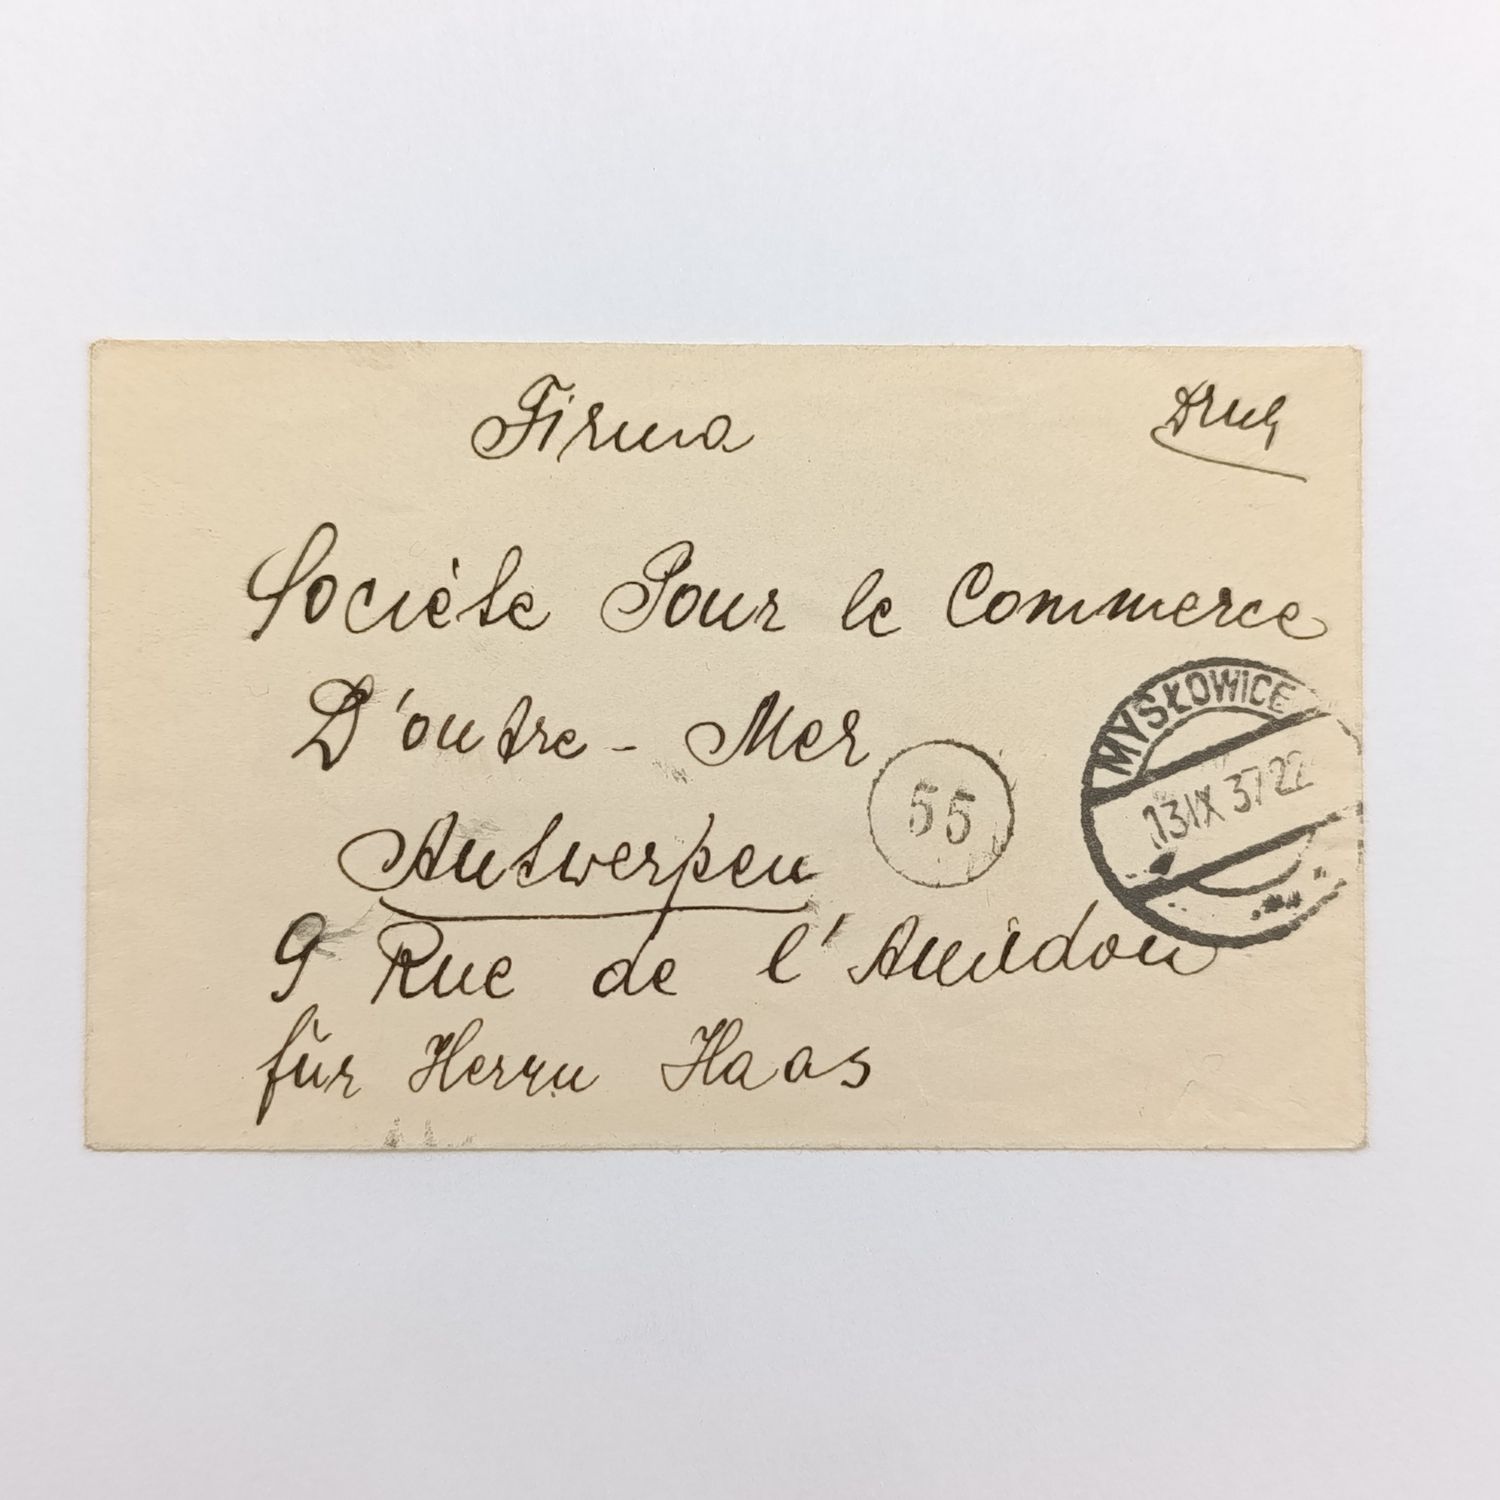 Firma
Druk
Sociète Pour le Commerce
D'outre - Mer
Antwerpen
9 Rue de l'Amidon
für Herrn Haas
55
MYSŁOWICE
13 IX 37 22